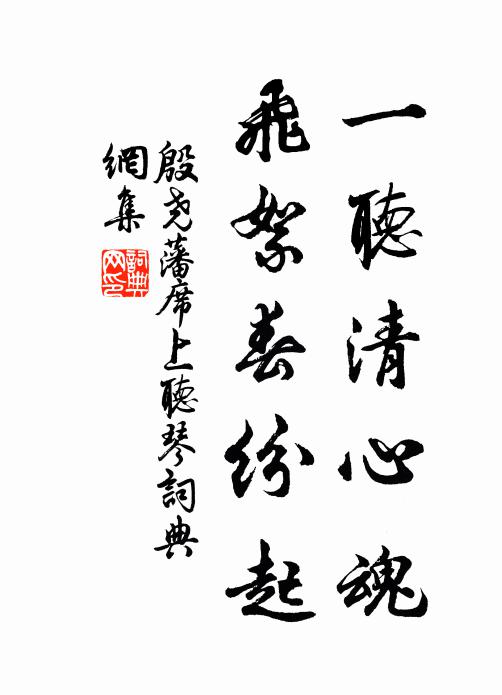 一聽清心魂
飛絮春紛起
殷尧藩席上聽琴詞典
網集
詞典
网印